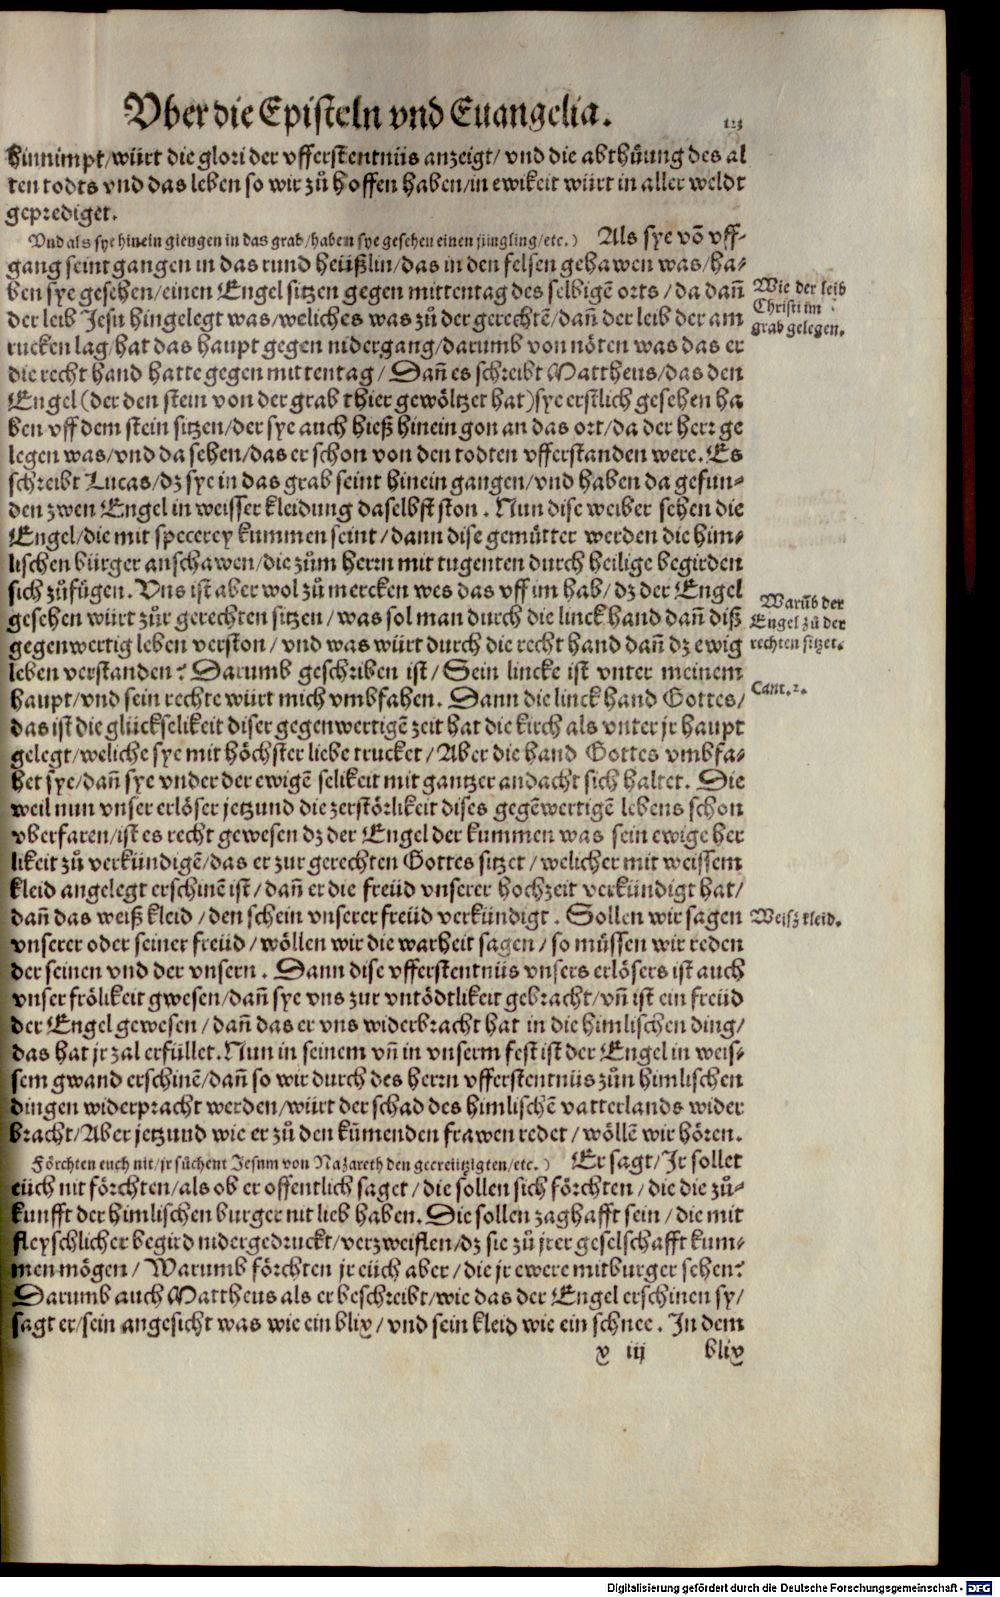 Vber die Episteln vnd Euangelia.
hinnimpt/würt die glori der vfferstentnüs anzeigt/ vnd die abthůung des al
ten todts vnd das leben so wir zů hoffen haben/in ewikeit würt in aller weldt
geprediget.
Vnd als sye hinein giengen in das grab/haben sye gesehen einen jüngling/etc.) Als sye võ vff-
gang seint gangen in das rund heüßlin/das in den felsen gehawen was/ha-
ben sye gesehen/einen Engel sitzen gegen mittentag des selbigẽ orts/da dañ
Wie der leib
Christi im
grab gelegen.
der leib Jesu hingelegt was/weliches was zů der gerechtẽ/dañ der leib der am
rucken lag/hat das haupt gegen nidergang/darumb von nöten was das er
die recht hand hatte gegen mittentag/ Dañ es schreibt Mattheus/das den
Engel (der den stein von der grab thier gewöltzet hat) sye erstlich gesehen ha
ben vff dem stein sitzen/der sye auch hieß hinein gon an das ort/da der herr ge
legen was/vnd da sehen/das er schon von den todten vfferstanden were. Es
schreibt Lucas/dz sye in das grab seint hinein gangen/vnd haben da gefun-
den zwen Engel in weisser kleidung daselbst ston. Nun dise weiber sehen die
Engel/die mit specerey kummen seint/dann dise gemütter werden die him-
lischen bürger anschawen/die zům herrn mit tugenten durch heilige begirden
sich zůfügen. Vns ist aber wol zů mercken wes das vff im hab/dz der Engel
gesehen würt zůr gerechten sitzen/was sol man durch die linck hand dañ diß
Warũb der
Engel zů der
rechten sitzet.
gegenwertig leben verston/vnd was würt durch die recht hand dañ dz ewig
leben verstanden? Darumb geschriben ist/Sein lincke ist vnter meinem
haupt/vnd sein rechte würt mich vmbfahen. Dann die linck hand Gottes/
Cant. 2.
das ist die glückselikeit diser gegenwertigẽ zeit hat die kirch als vnter jr haupt
gelegt/weliche sye mit höchster liebe trucket/Aber die hand Gottes vmbfa-
het sye/dañ sye vnder der ewigẽ selikeit mit gantzer andacht sich haltet. Die
weil nun vnser erlöser jetzund die zerstörlikeit dises gegẽwertigẽ lebens schon
vberfaren/ist es recht gewesen dz der Engel der kummen was sein ewige her
likeit zů verkündigẽ/das er zur gerechten Gottes sitzet/welicher mit weissem
kleid angelegt erschinẽ ist/dañ er die freüd vnserer hochzeit verkündigt hat/
dañ das weiß kleid/den schein vnserer freüd verkündigt. Sollen wir sagen
Weisz kleid.
vnserer oder seiner freüd/wöllen wir die warheit sagen/so müssen wir reden
der seinen vnd der vnsern. Dann dise vfferstentnüs vnsers erlösers ist auch
vnser frölikeit gwesen/dañ sye vns zur vntödtlikeit gebracht/vñ ist ein freüd
der Engel gewesen/dañ das er vns widerbracht hat in die himlischen ding/
das hat jr zal erfüllet. Nun in seinem vñ in vnserm fest ist der Engel in weis-
sem gwand erschinẽ/dañ so wir durch des herrn vfferstentnüs zůn himlischen
dingen widerpracht werden/würt der schad des himlischẽ vatterlands wider
bracht/Aber jetzund wie er zů den kũmenden frawen redet/wöllẽ wir hören.
Förchten euch nit/jr sůchent Jesum von Nazareth den gecreützigten/etc.) Er sagt/Jr sollet
eüch nit förchten/als ob er offentlich saget/die sollen sich förchten/die die zů-
kunfft der himlischen burger nit lieb haben. Die sollen zaghafft sein/die mit
fleyschlicher begird nidergedruckt/verzweiflen/dz sie zů jrer geselschafft kum-
men mögen/Warumb förchten jr eüch aber/die jr ewere mitburger sehen?
Darumb auch Mattheus als er beschreibt/wie das der Engel erschinen sy/
sagt er/sein angesicht was wie ein blix/vnd sein kleid wie ein schnee. In dem
x iij blix
Digitalisierung gefördert durch die Deutsche Forschungsgemeinschaft - DFG